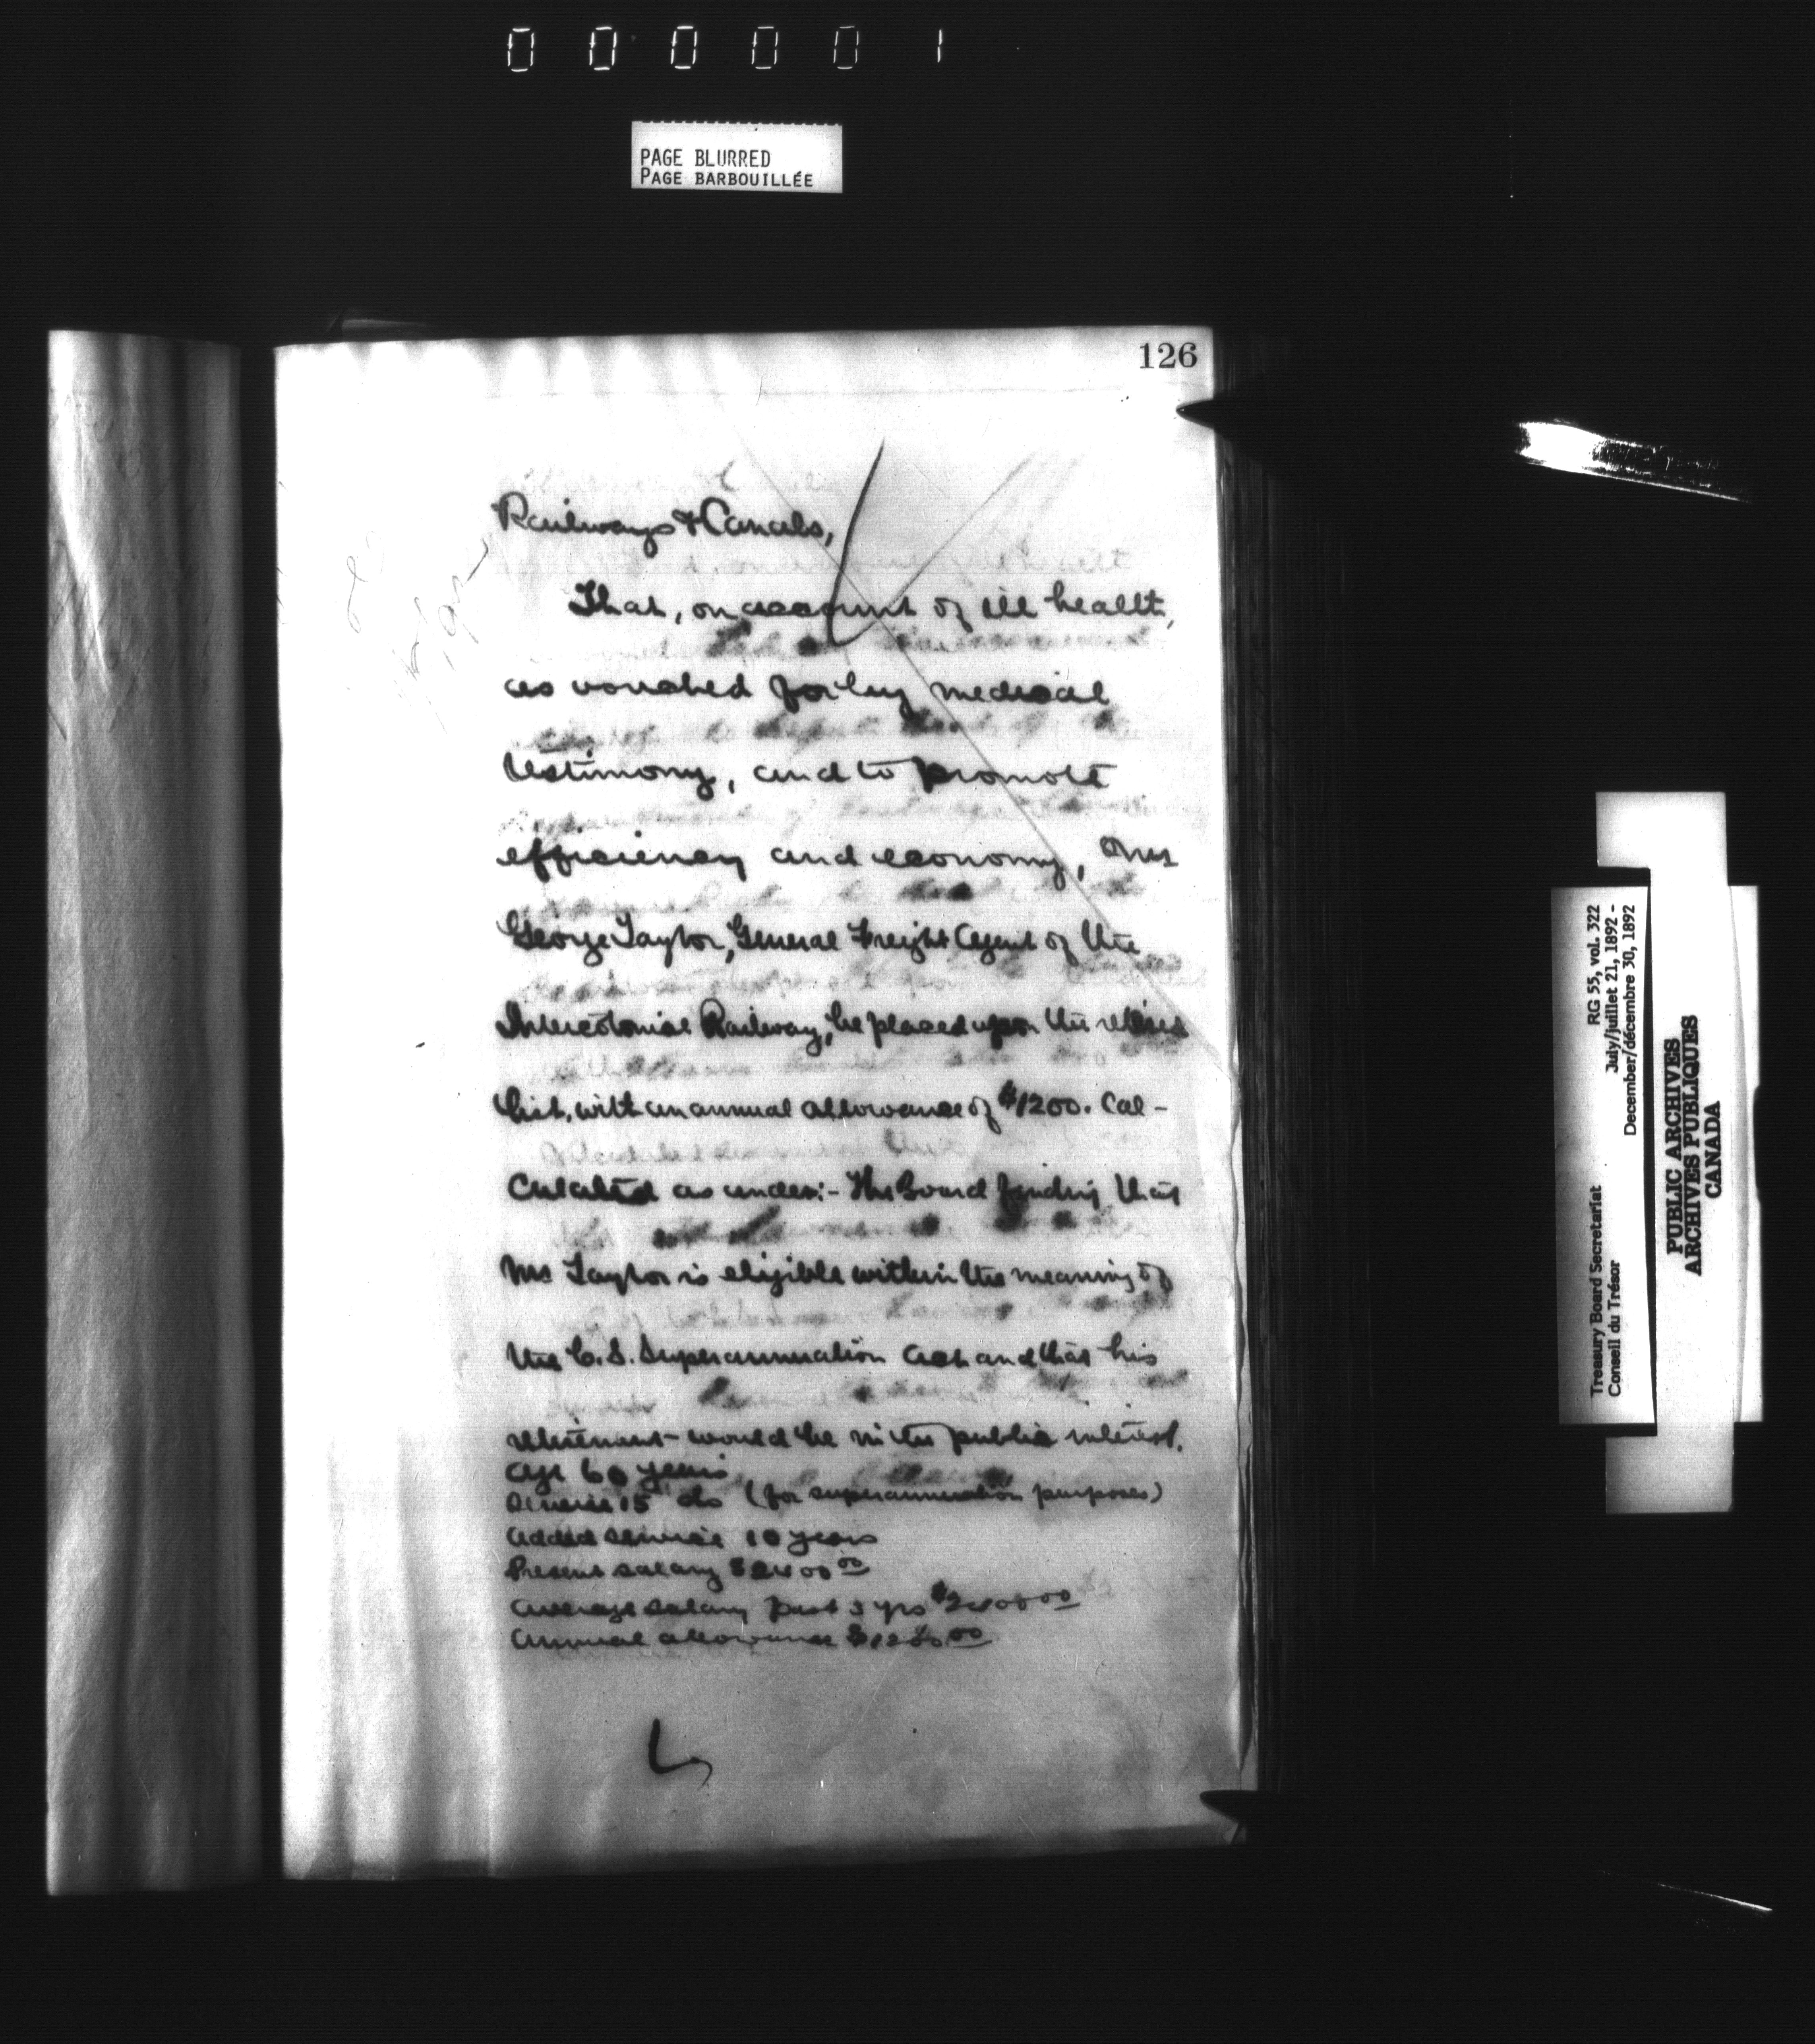 000001
PAGE BLURRED
PAGE BARBOUILLÉE
126
Railways & Canals,
That, on account of ill health,
as vouched for by medical
testimony, and to promote
efficiency and economy, Mr
George Taylor, General Freight Agent of the
Intercolonial Railway, be placed upon the retired
list, with an annual allowance of $1200. Cal-
culated as under:- The Board finding that
Mr Taylor is eligible within the meaning of
the C. S. Superannuation Act and that his
retirement would be in the public interest.
Age 60 years
Service 15 do (for superannuation purposes)
Added service 10 years
Present salary $2400 00
Average salary past 3 yrs $2400 00
Annual allowance $1200.00
RG 55, vol. 322
July/juillet 21, 1892 -
December/décembre 30, 1892
Treasury Board Secretariat
Conseil du Trésor
PUBLIC ARCHIVES
ARCHIVES PUBLIQUES
CANADA